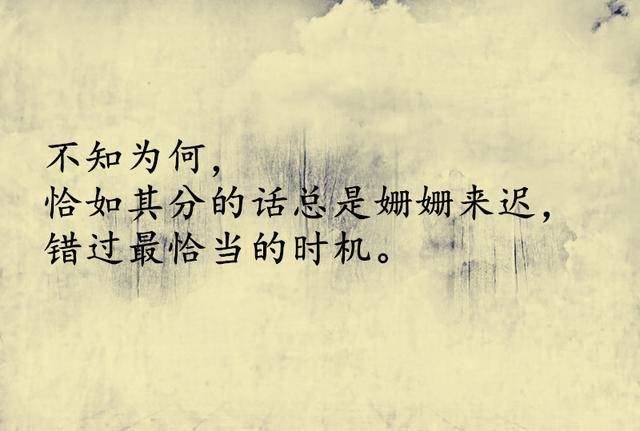 不知为何，
恰如其分的话总是姗姗来迟，
错过最恰当的时机。